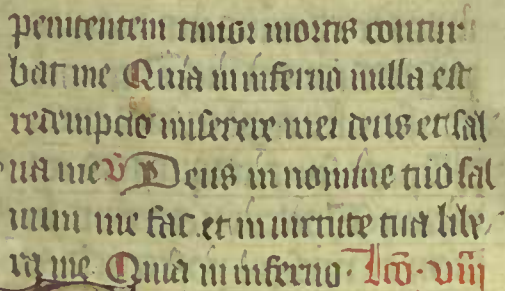 penitentem timor mortis contur
bat me Quia in inferno nulla est
redempcio miserere mei deus et sal
ua me v Deus in nomine tuo sal
uum me fac et in uirtute tua libe
ra me. Quia in inferno. Lcō. viii